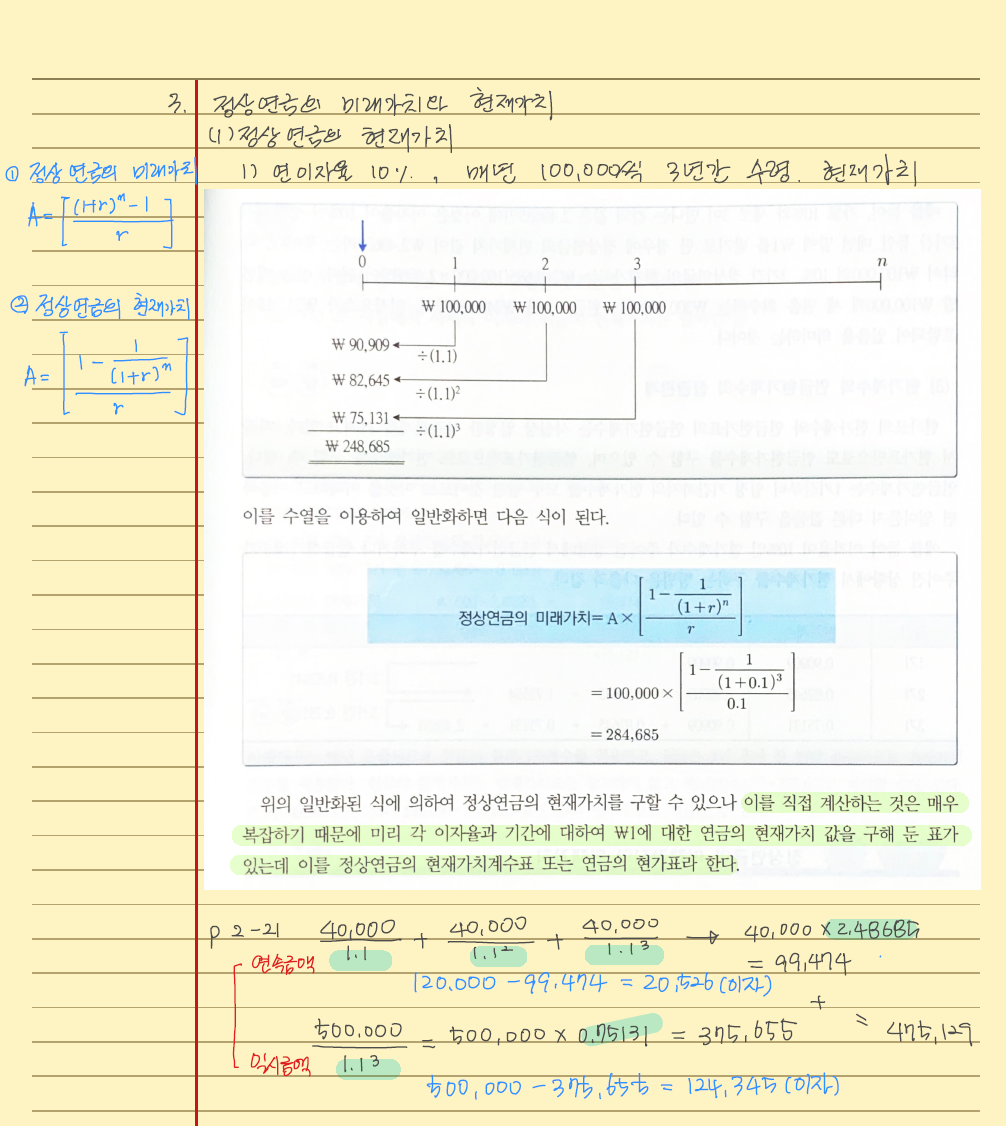 3. 정상연금의 미래가치와 현재가치
(1) 정상연금의 현재가치
1) 연이자율 10%, 매년 100,000씩 3년간 수령. 현재가치
① 정상연금의 미래가치
A=[((1+r)^n - 1)/r]
② 정상연금의 현재가치
A=[(1 - 1/(1+r)^n)/r]
0 1 2 3 n
₩ 100,000 ₩ 100,000 ₩ 100,000
₩ 90,909
÷(1.1)
₩ 82,645
÷(1.1)²
₩ 75,131
÷(1.1)³
₩ 248,685
이를 수열을 이용하여 일반화하면 다음 식이 된다.
정상연금의 미래가치= A × [(1 - 1/(1+r)^n)/r]
= 100,000 × [(1 - 1/(1+0.1)³)/0.1]
= 284,685
위의 일반화된 식에 의하여 정상연금의 현재가치를 구할 수 있으나 이를 직접 계산하는 것은 매우
복잡하기 때문에 미리 각 이자율과 기간에 대하여 ₩1에 대한 연금의 현재가치 값을 구해 둔 표가
있는데 이를 정상연금의 현재가치계수표 또는 연금의 현가표라 한다.
p 2-21 40,000/1.1 + 40,000/1.1² + 40,000/1.1³ → 40,000 × 2.48685
연속금액 = 99,474
120,000 - 99,474 = 20,526 (이자)
+
500,000/1.1³ = 500,000 × 0.75131 = 375,655 = 475,129
일시금액
500,000 - 375,655 = 124,345 (이자)